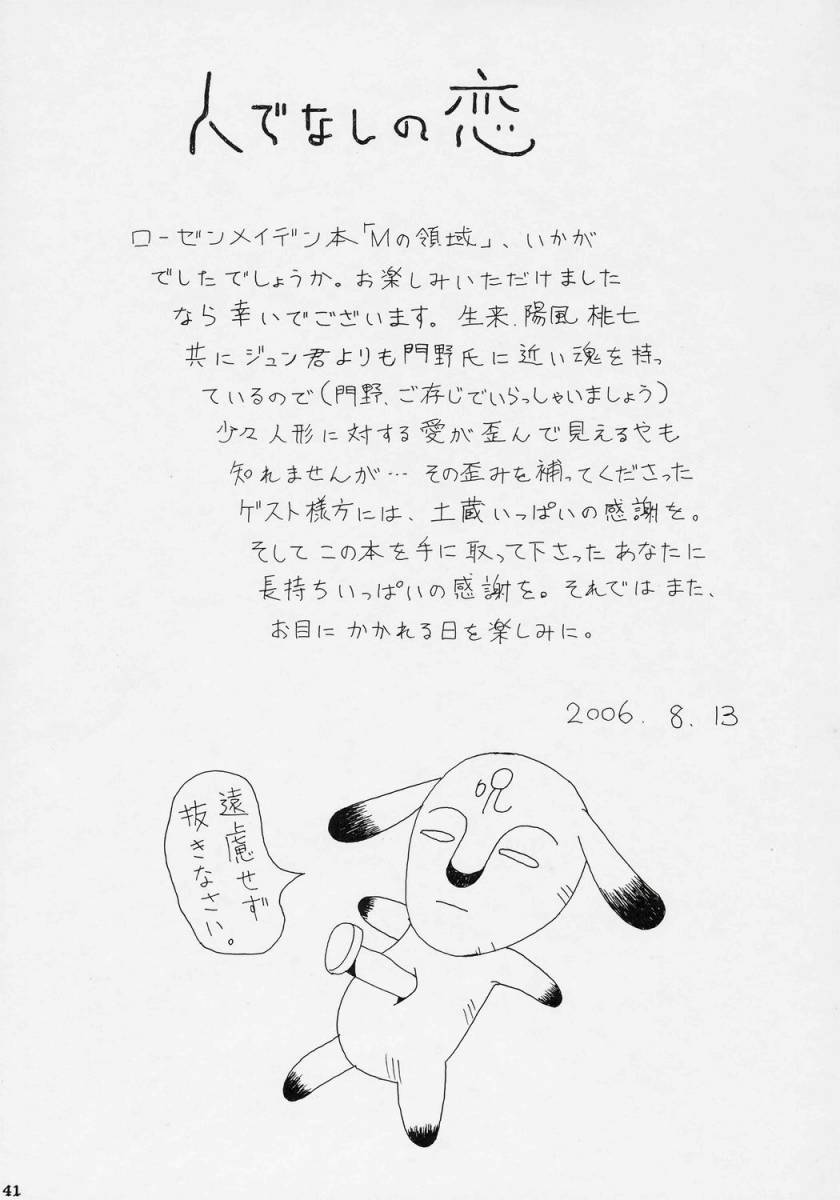 人でなしの恋
ローゼンメイデン本「Mの領域」、いかが
でしたでしょうか。お楽しみいただけました
なら幸いでございます。生来、陽風 桃七
共にジュン君よりも門野氏に近い魂を持っ
ているので（門野、ご存じでいらっしゃいましょう）
少々人形に対する愛が歪んで見えるやも
知れませんが…その歪みを補ってくださった
ゲスト様方には、土蔵いっぱいの感謝を。
そしてこの本を手に取って下さったあなたに
長持ちいっぱいの感謝を。それではまた、
お目にかかれる日を楽しみに。
2006. 8. 13
呪
遠慮せず
抜きなさい。
41